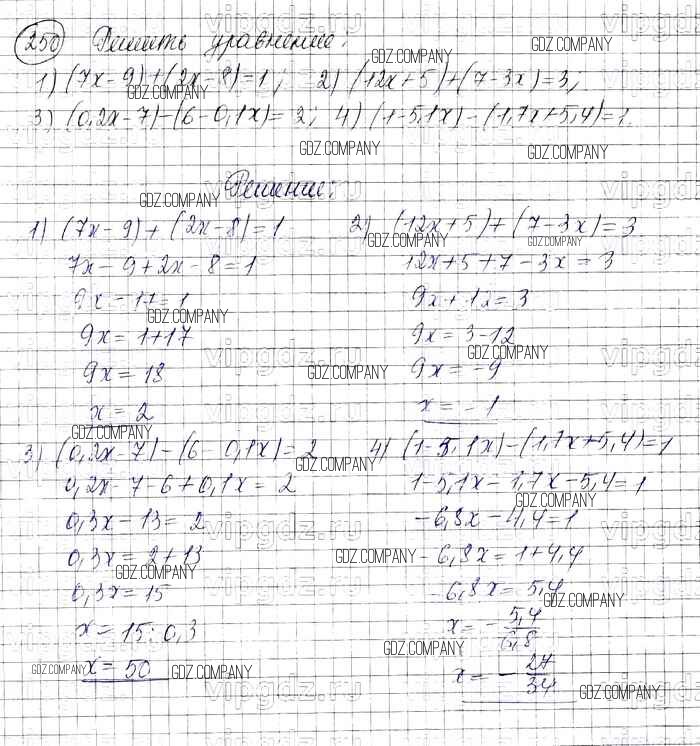 250 Решить уравнение:
1) (7x-9)+(2x-8)=1; 2) (12x+5)+(7-3x)=3;
3) (0,2x-7)-(6-0,1x)=2; 4) (1-5,1x)-(1,7x+5,4)=1
Решение:
1) (7x-9)+(2x-8)=1
7x-9+2x-8=1
9x-17=1
9x=1+17
9x=18
x=2
2) (12x+5)+(7-3x)=3
12x+5+7-3x=3
9x+12=3
9x=3-12
9x=-9
x=-1
3) (0,2x-7)-(6-0,1x)=2
0,2x-7-6+0,1x=2
0,3x-13=2
0,3x=2+13
0,3x=15
x=15:0,3
x=50
4) (1-5,1x)-(1,7x+5,4)=1
1-5,1x-1,7x-5,4=1
-6,8x-4,4=1
-6,8x=1+4,4
-6,8x=5,4
x=-5,4/6,8
x=-27/34
GDZ.COMPANY
vipgdz.ru